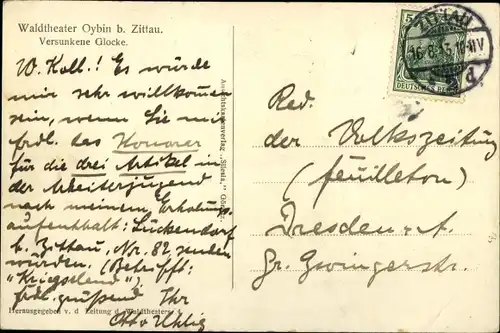 Waldtheater Oybin b. Zittau.
Versunkene Glocke.
W. Koll.! Es würde
mir sehr willkommen
sein, wenn Sie mir
frdl. das Honorar
für die drei Artikel in
der Arbeiterjugend
nach meinem Erholungs-
aufenthalt: Lückendorf
b. Zittau, Nr. 82 senden
würden. (Betrifft:
"Kriegselend")
frdl. grüßend Ihr
Otto Uhlig
Herausgegeben v. d. Leitung d. Waldtheaters.
ZITTAU
16.8.13.
DEUTSCHES REICH
5
Red.
der Volkszeitung
(Feuilleton)
Dresden-A.
Gr. Zwingerstr.